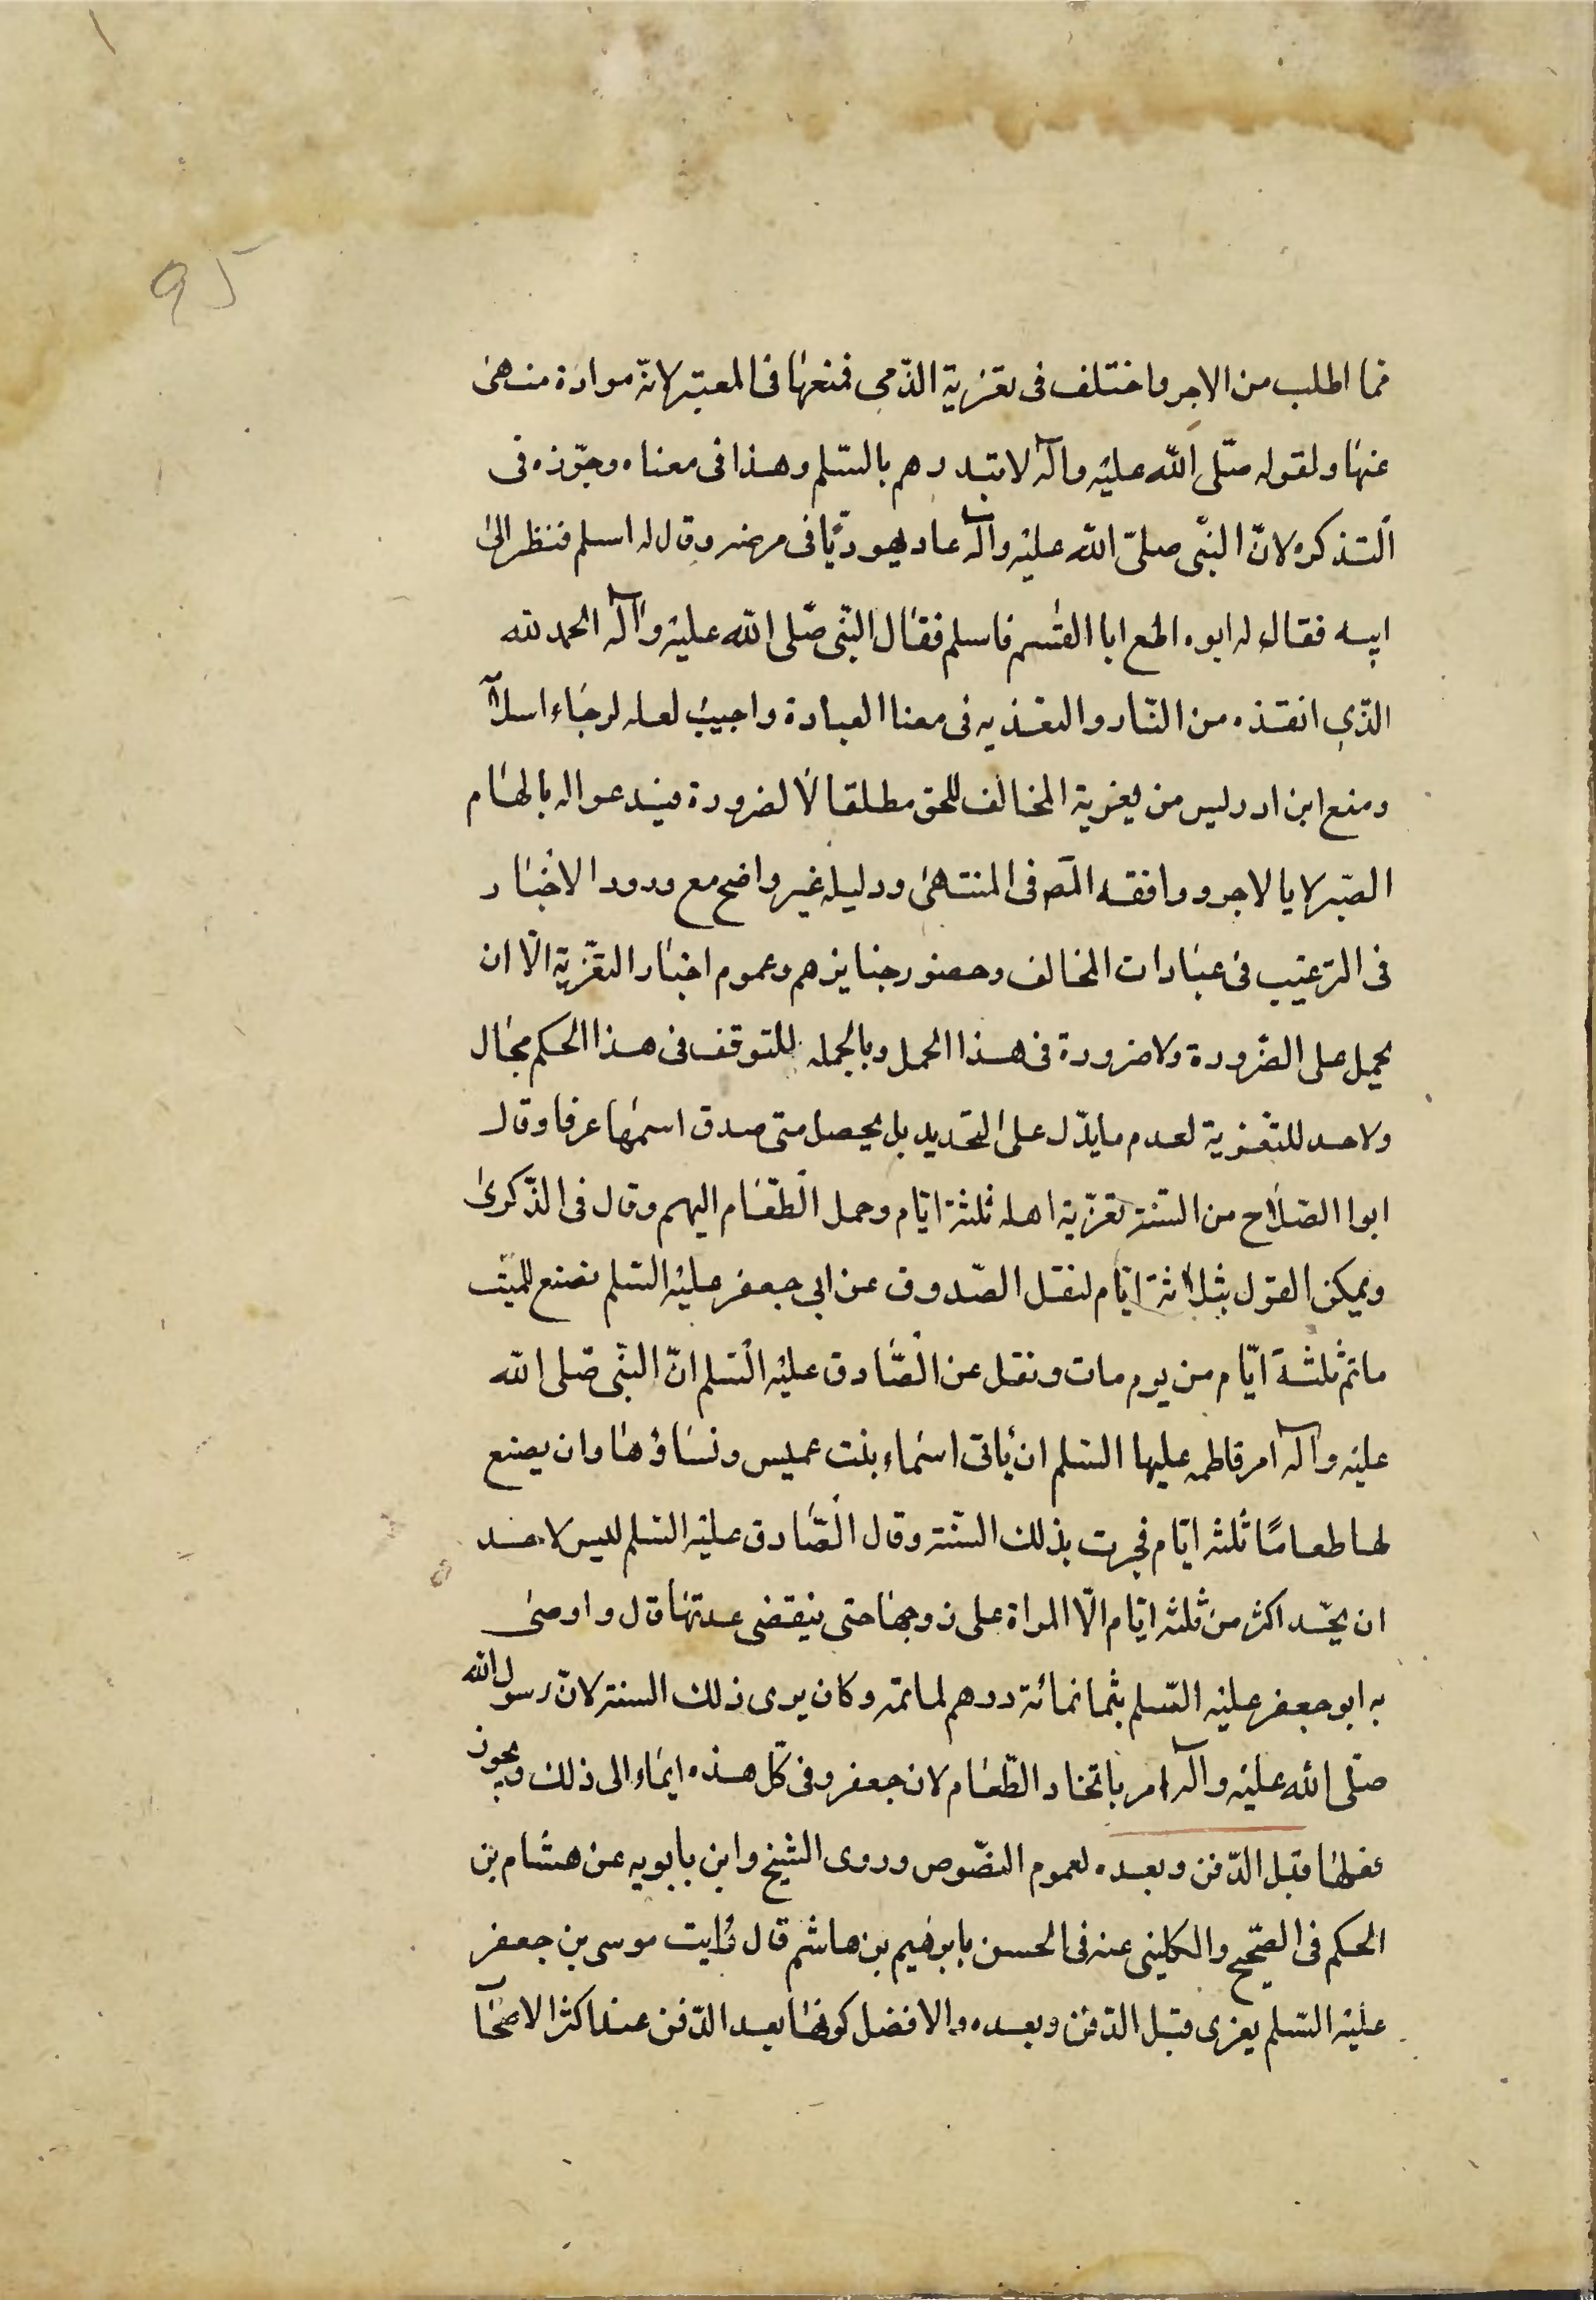 95
فما اطلب من الاجر واختلف فى تعزية الذّمى فمنعها فى المعتبر لانّه موادة منهى
عنها ولقوله صلّى اللّه عليه وآله لا تبدوهم بالسّلم وهذا فى معناه وجوّزه فى
التذكره لانّ النبّى صلىّ اللّه عليه وآله عاد يهوديّا فى مرضه وقال له اسلم فنظر الى
ابيه فقال له ابوه اطع ابا القسم فاسلم فقال النبّى صلّى اللّه عليه وآله الحمد للّه
الذّى انقذه من النّار والتعزيه فى معنا العيادة واجيب لعله لرجاء اسلاآ
ومنع ابن ادريس من تعزية المخالف للحق مطلقا لا لضرورة فيدعو اله بالهام
الصّبر لا بالاجر ووافقه المصّ فى المنتهى ودليله غير واضح مع ورود الاخبار
فى الترغيب فى عيادات المخالف وحضور جنايزهم وعموم اخبار التعزية الّا ان
يحمل على الضّرورة ولا ضرورة فى هذا الحمل وبالجمله للتوقف فى هذا الحكم مجال
ولا حد للتعزية لعدم ما يدّل على التحديد بل يحصل متى صدق اسمها عرفا وقال
ابوا الصّلاح من السّنة تعزية اهله ثلثة ايّام وحمل الطّعام اليهم وقال فى الذّكرى
ويمكن القول بثلاثة ايّام لنقل الصّدوق عن ابى جعفر عليه السّلم تصنع للميّت
ماتم ثلثة ايّام من يوم مات ونقل عن الصّادق عليه السّلم انّ النبّى صلّى اللّه
عليه وآله امر فاطمه عليها السّلم ان تأتى اسماء بنت عميس ونساؤها وان يصنع
لها طعامًا ثلثه ايّام فجرت بذلك السّنّة وقال الصّادق عليه السّلم ليس لاحد
ان يحّد اكثر من ثلثه ايّام الّا المراة على زوجها حتى ينقضى عدتها قال واوصى
به ابو جعفر عليه السّلم بثمانمائة درهم لماتمه وكان يرى ذلك السنة لانّ رسول اللّه
صلّى اللّه عليه وآله امر باتخاد الطّعام لان جعفر وفى كّل هذه ايماء الى ذلك ويجوز
فعلها قبل الدّفن وبعده لعموم النصّوص وروى الشيخ وابن بابويه عن هشام بن
الحكم فى الصّحيح والكلينى عنه فى الحسن بابرهيم بن هاشم قال رايت موسى بن جعفر
عليه السّلم يعزى قبل الدّفن وبعده والافضل كونها بعد الدّفن عند اكثر الاصحآ